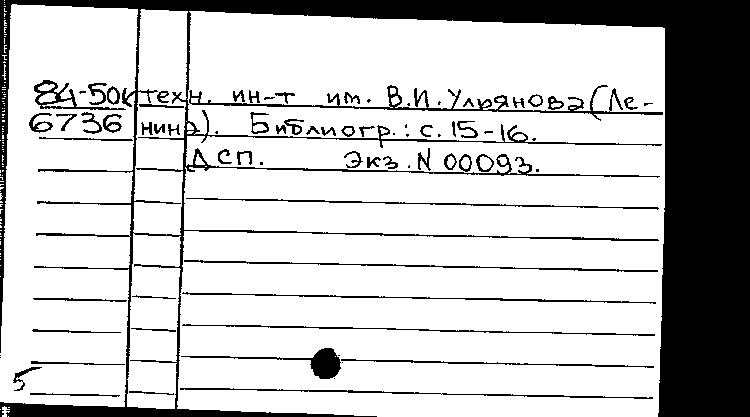 84-50к техн. ин-т им. В.И. Ульянова (Ле-
6736 нина). Библиогр.: с. 15-16.
ДСП. Экз. N 00093.
5